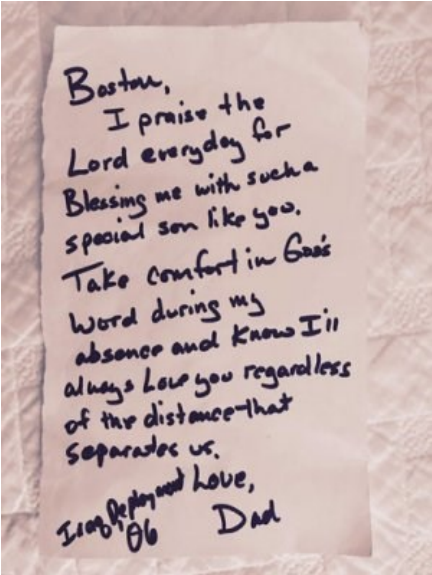 Boston,
I praise the
Lord everyday for
Blessing me with such a
special son like you.
Take comfort in God's
word during my
absence and know I'll
always Love you regardless
of the distance that
separates us.
Love,
Dad
Iraq Deployment
06